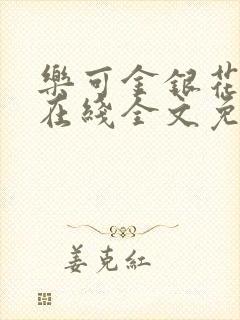 樂可金銀花
在綫全文免
姜克紅